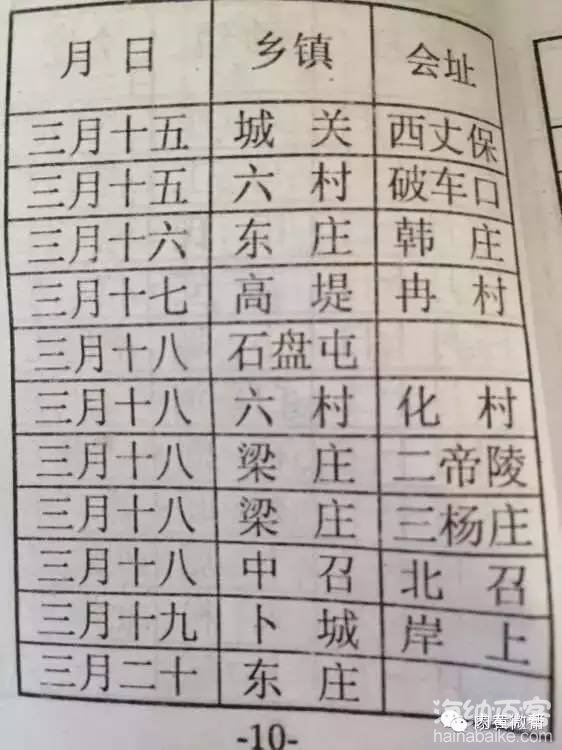 月 日 乡镇 会址
三月十五 城关 西丈保
三月十五 六村 破车口
三月十六 东庄 韩庄
三月十七 高堤 冉村
三月十八 石盘屯
三月十八 六村 化村
三月十八 梁庄 二帝陵
三月十八 梁庄 三杨庄
三月十八 中召 北召
三月十九 卜城 岸上
三月二十 东庄
-10-
海纳百客
hainabaike.com